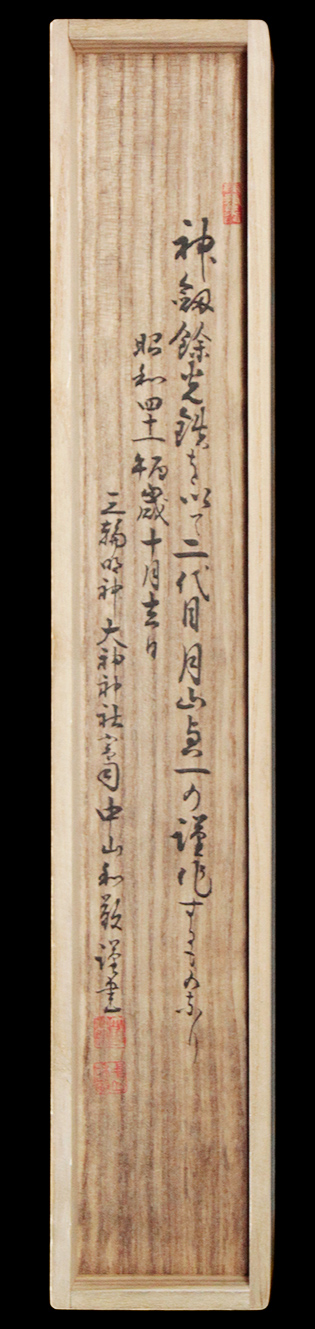 神劔餘光鉄を以て二代目月山貞一の謹作するものなり
昭和四十一年歳十月吉日
三輪明神大神神社宮司中山和敬謹書